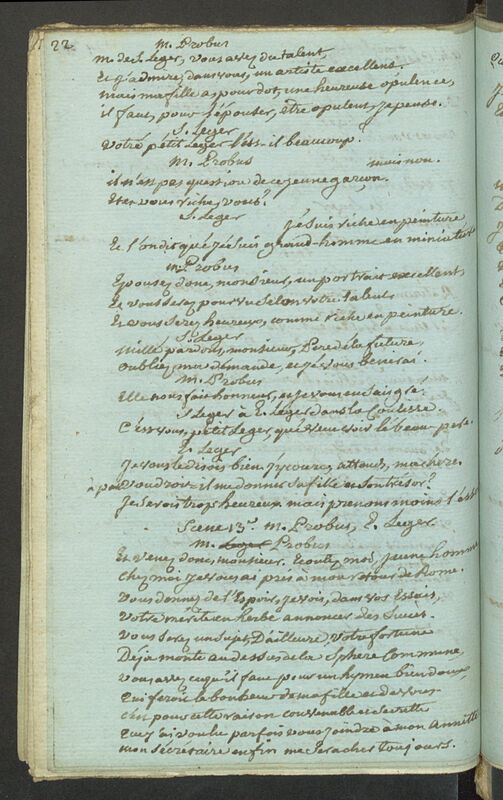 22
M. Probus
M. de St Leger, vous avez du talent,
Et j'admire, dans vous, un artiste excellent.
mais ma fille a pour dot, une heureuse opulence,
il faut, pour l'épouser, être opulent, je pense.
S. Leger
votre petit Leger l'est-il beaucoup?
M. Probus
mais non.
il n'est pas question de ce jeune garçon.
Etes vous riche, vous?
S. Leger
je suis riche en peinture
Et l'on dit que je suis grand-homme en miniature
M. Probus
Epousez donc, monsieur, un portrait excellent,
Et vous serez pourvu selon votre talent
Et vous serez heureux, comme riche en peinture.
S. Leger
mille pardons, monsieur, Pere de la future,
oubliez, ma demande, et je vous benirai.
M. Probus
Elle nous fait honneur, et je vous en sais gré.
S Leger à E. Leger dans la Coulisse.
C'est vous, petit Leger, que veut voir le beau-pere.
E. Leger
Je vous le disois bien. J'y cours, attends, ma chere.
à part voudroit-il me donner sa fille et son trésor?
Je serois trop heureux mais prenons moins l'essor
Scene 13e. M. Probus, E. Leger.
M. Leger Probus
Et venez donc, monsieur. Ecoutez moi, jeune homme
chez moi je vous ai pris à mon retour de Rome.
vous donnez de l'Espoir, je vois, dans vos Essais,
votre merite en herbe annoncer des succès
vous serez un sujet, D'ailleurs, votre fortune
Déja monte au dessus de la Sphere Commune,
vous avez ce qu'il faut pour un hymen bien doux,
qui feroit le bonheur de ma fille et de vous
c'est pour cette raison convenable et secrette
que j'ai voulu parfois vous joindre à mon Annette
mon secretaire enfin me les cachet toujours.